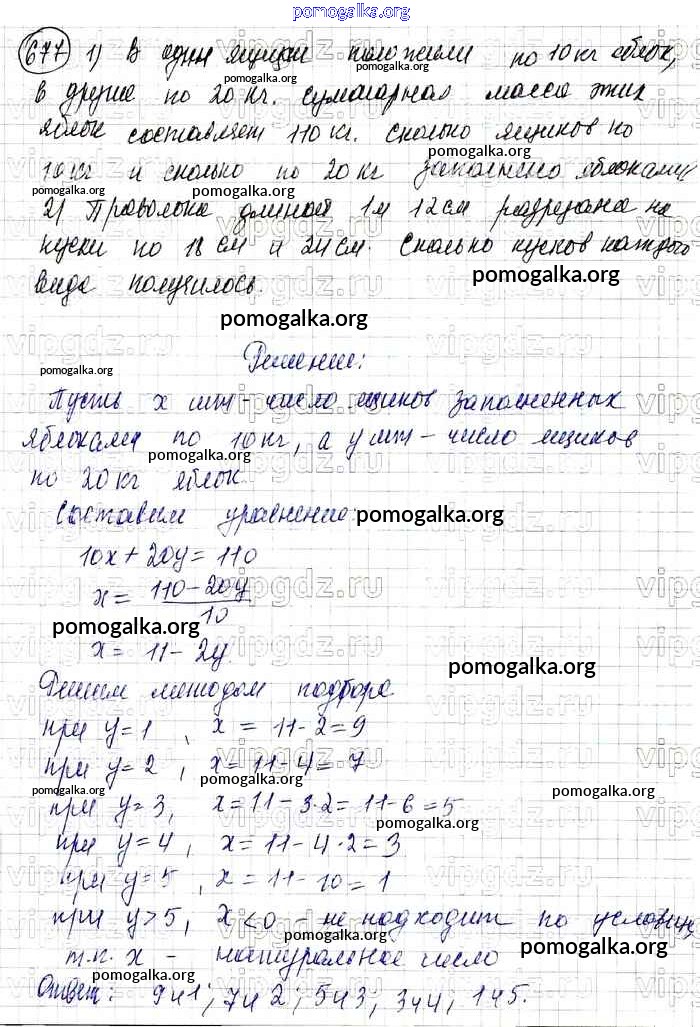 pomogalka.org
677 1) В одни ящики положили по 10 кг яблок,
в другие по 20 кг. Суммарная масса этих
яблок составляет 110 кг. Сколько ящиков по
10 кг и сколько по 20 кг заполнено яблоками
2) Проволока длиной 1м 12см разрезана на
куски по 18 см и 24 см. Сколько кусков каждого
вида получилось.
pomogalka.org
pomogalka.org
Решение:
Пусть x шт - число ящиков заполненных
яблоками по 10 кг, а y шт - число ящиков
по 20 кг яблок
Составим уравнение: pomogalka.org
10x + 20y = 110
x = 110 - 20y / 10
pomogalka.org
x = 11 - 2y
pomogalka.org
Решим методом подбора
при y = 1, x = 11 - 2 = 9
при y = 2, x = 11 - 4 = 7
pomogalka.org
при y = 3, x = 11 - 3·2 = 11 - 6 = 5
pomogalka.org
при y = 4, x = 11 - 4·2 = 3
при y = 5, x = 11 - 10 = 1
при y > 5, x < 0 - не подходит по условию,
pomogalka.org
т.к. x - натуральное число
pomogalka.org
Ответ: 9и1; 7и2; 5и3; 3и4; 1и5.